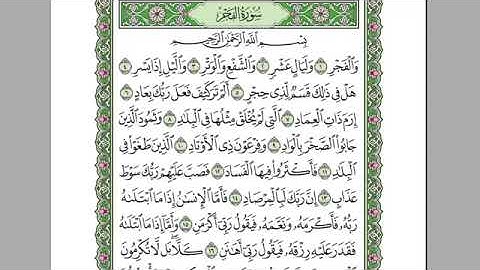 سُورَةُ الفَجْرِ
بِسْمِ اللَّهِ الرَّحْمَٰنِ الرَّحِيمِ
وَالْفَجْرِ ١ وَلَيَالٍ عَشْرٍ ٢ وَالشَّفْعِ وَالْوَتْرِ ٣ وَاللَّيْلِ إِذَا يَسْرِ ٤
هَلْ فِي ذَٰلِكَ قَسَمٌ لِّذِي حِجْرٍ ٥ أَلَمْ تَرَ كَيْفَ فَعَلَ رَبُّكَ بِعَادٍ ٦
إِرَمَ ذَاتِ الْعِمَادِ ٧ الَّتِي لَمْ يُخْلَقْ مِثْلُهَا فِي الْبِلَادِ ٨ وَثَمُودَ الَّذِينَ
جَابُوا الصَّخْرَ بِالْوَادِ ٩ وَفِرْعَوْنَ ذِي الْأَوْتَادِ ١٠ الَّذِينَ طَغَوْا فِي
الْبِلَادِ ١١ فَأَكْثَرُوا فِيهَا الْفَسَادَ ١٢ فَصَبَّ عَلَيْهِمْ رَبُّكَ سَوْطَ
عَذَابٍ ١٣ إِنَّ رَبَّكَ لَبِالْمِرْصَادِ ١٤ فَأَمَّا الْإِنسَانُ إِذَا مَا ابْتَلَاهُ
رَبُّهُ فَأَكْرَمَهُ وَنَعَّمَهُ فَيَقُولُ رَبِّي أَكْرَمَنِ ١٥ وَأَمَّا إِذَا مَا ابْتَلَاهُ
فَقَدَرَ عَلَيْهِ رِزْقَهُ فَيَقُولُ رَبِّي أَهَانَنِ ١٦ كَلَّا بَل لَّا تُكْرِمُونَ